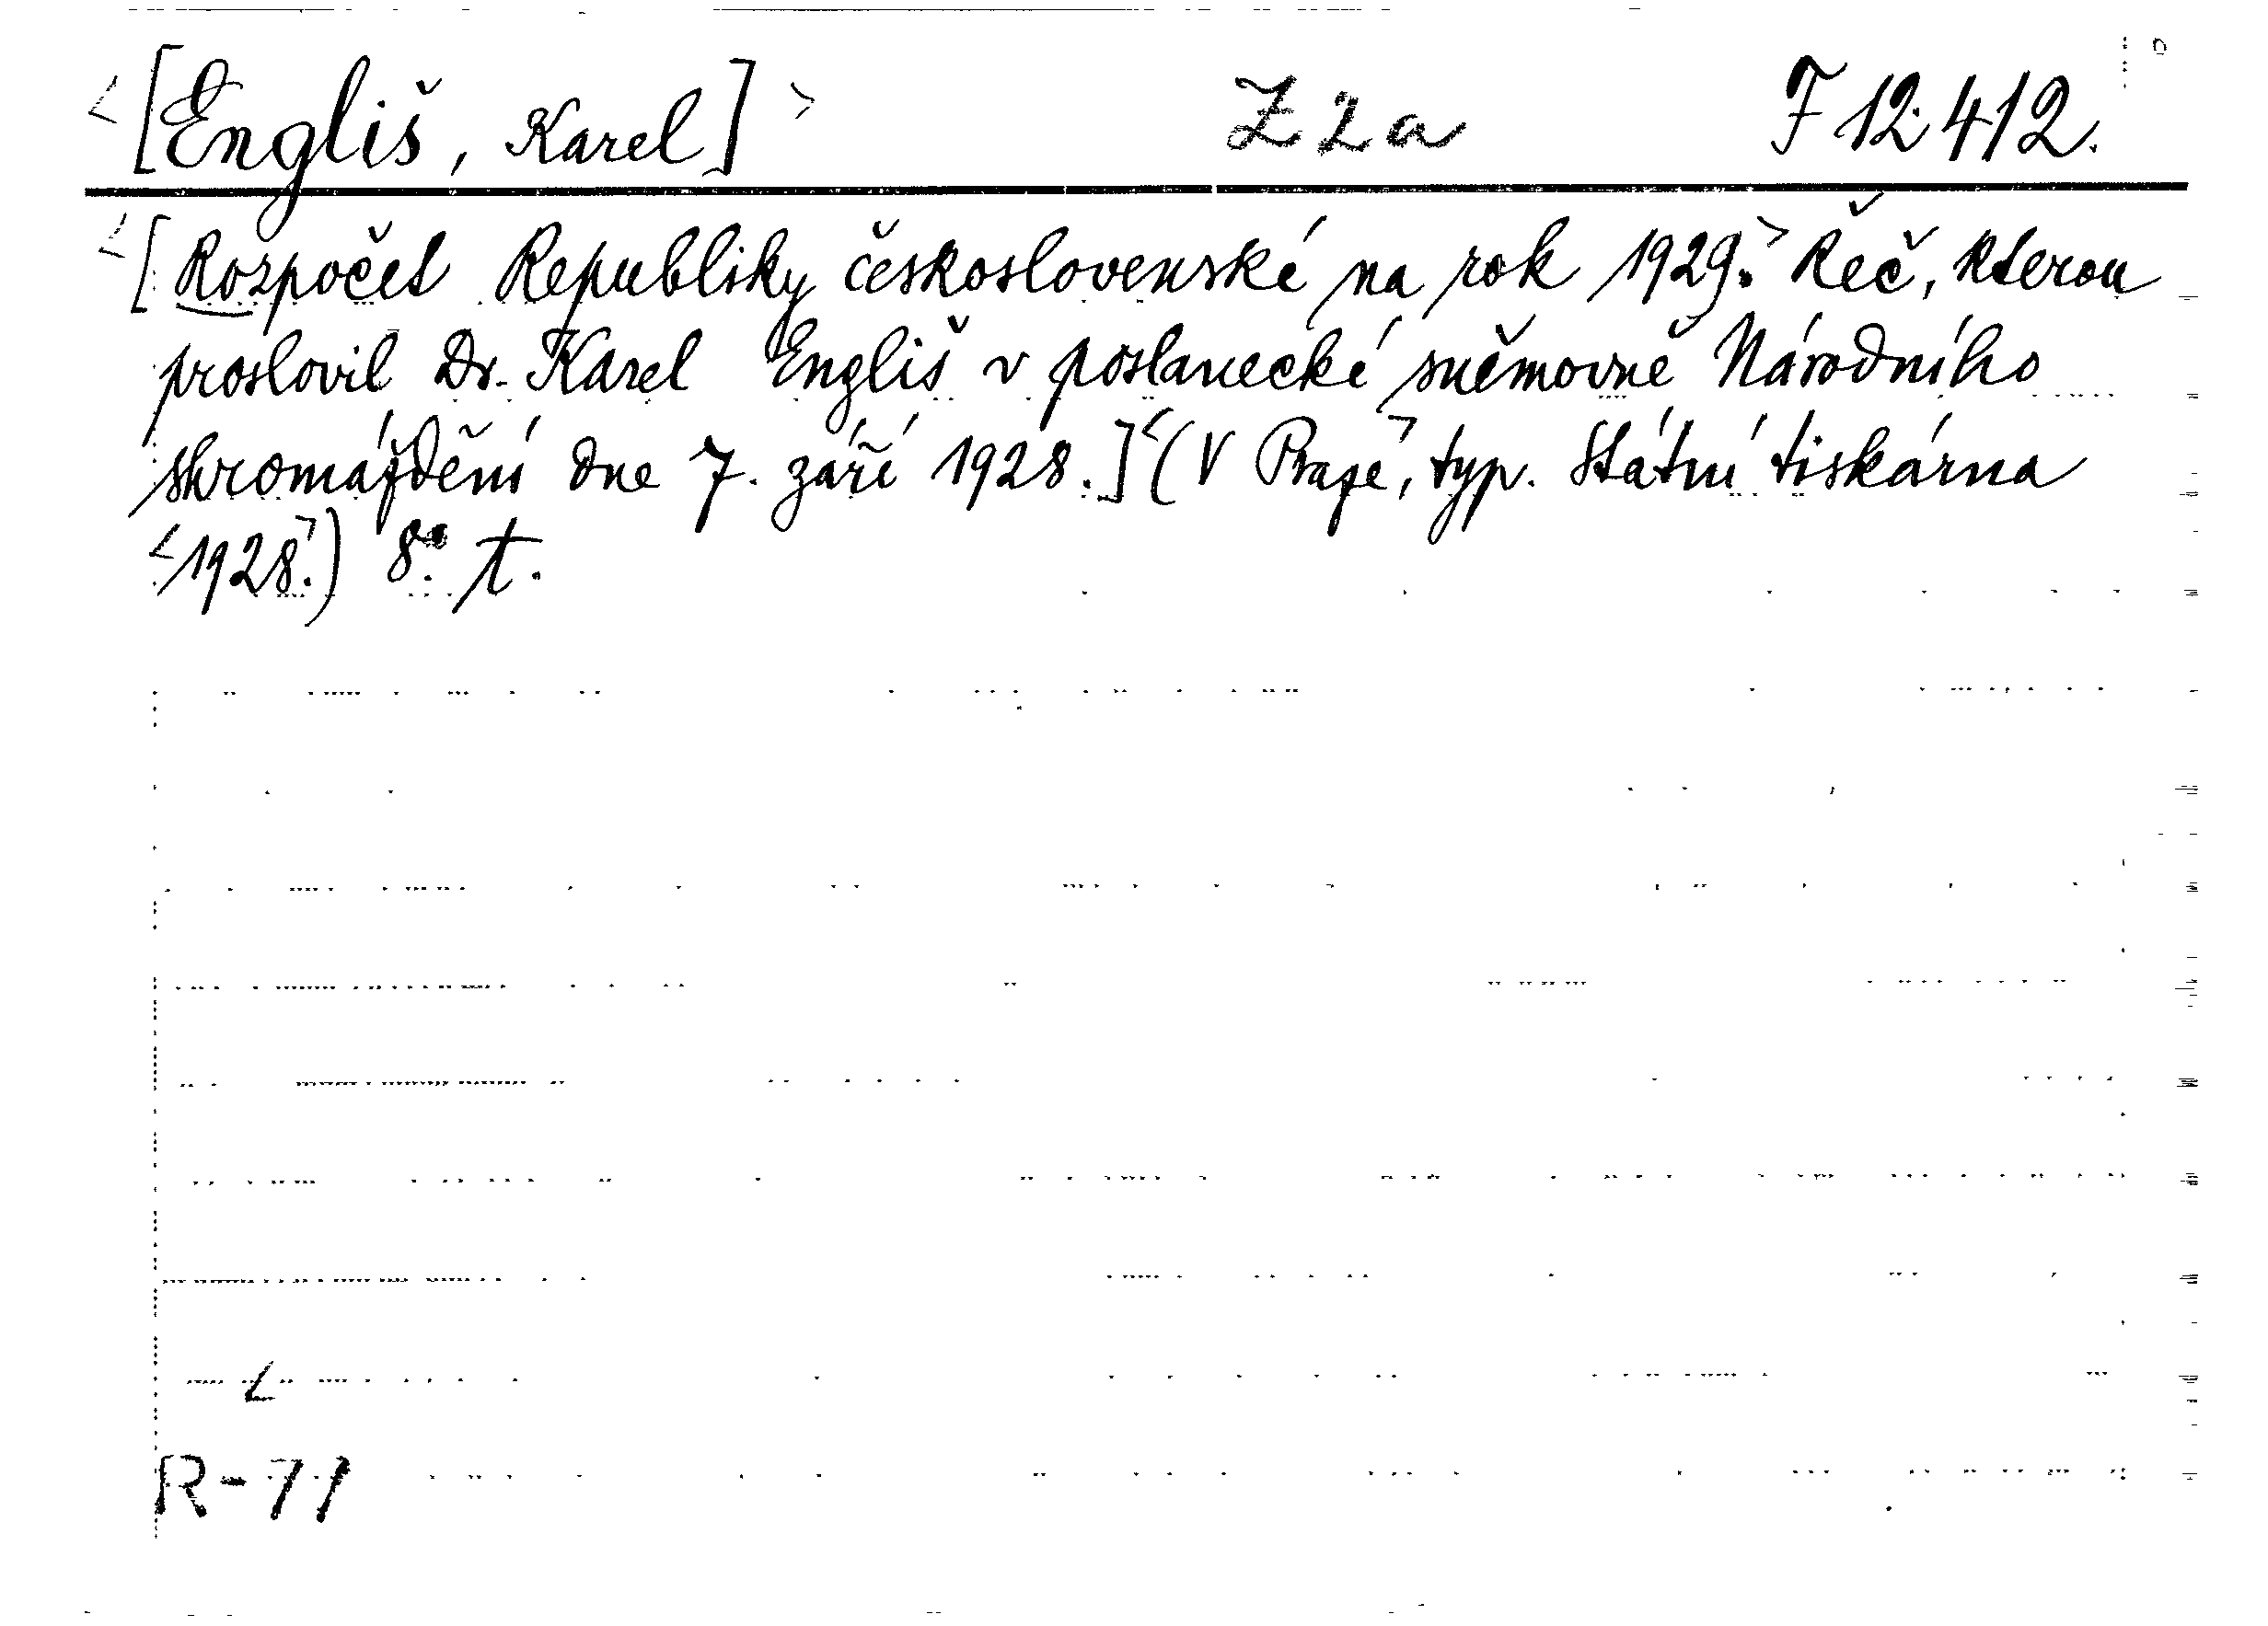 <[Engliš, Karel]> Z2a F 12.412.
<[Rozpočet Republiky československé na rok 1929.> Řeč, kterou
proslovil Dr. Karel Engliš v poslanecké sněmovně Národního
shromáždění dne 7. září 1928.]<(V Praze>, typ. Státní tiskárna
<1928>.) 8°. t.
L
R-71